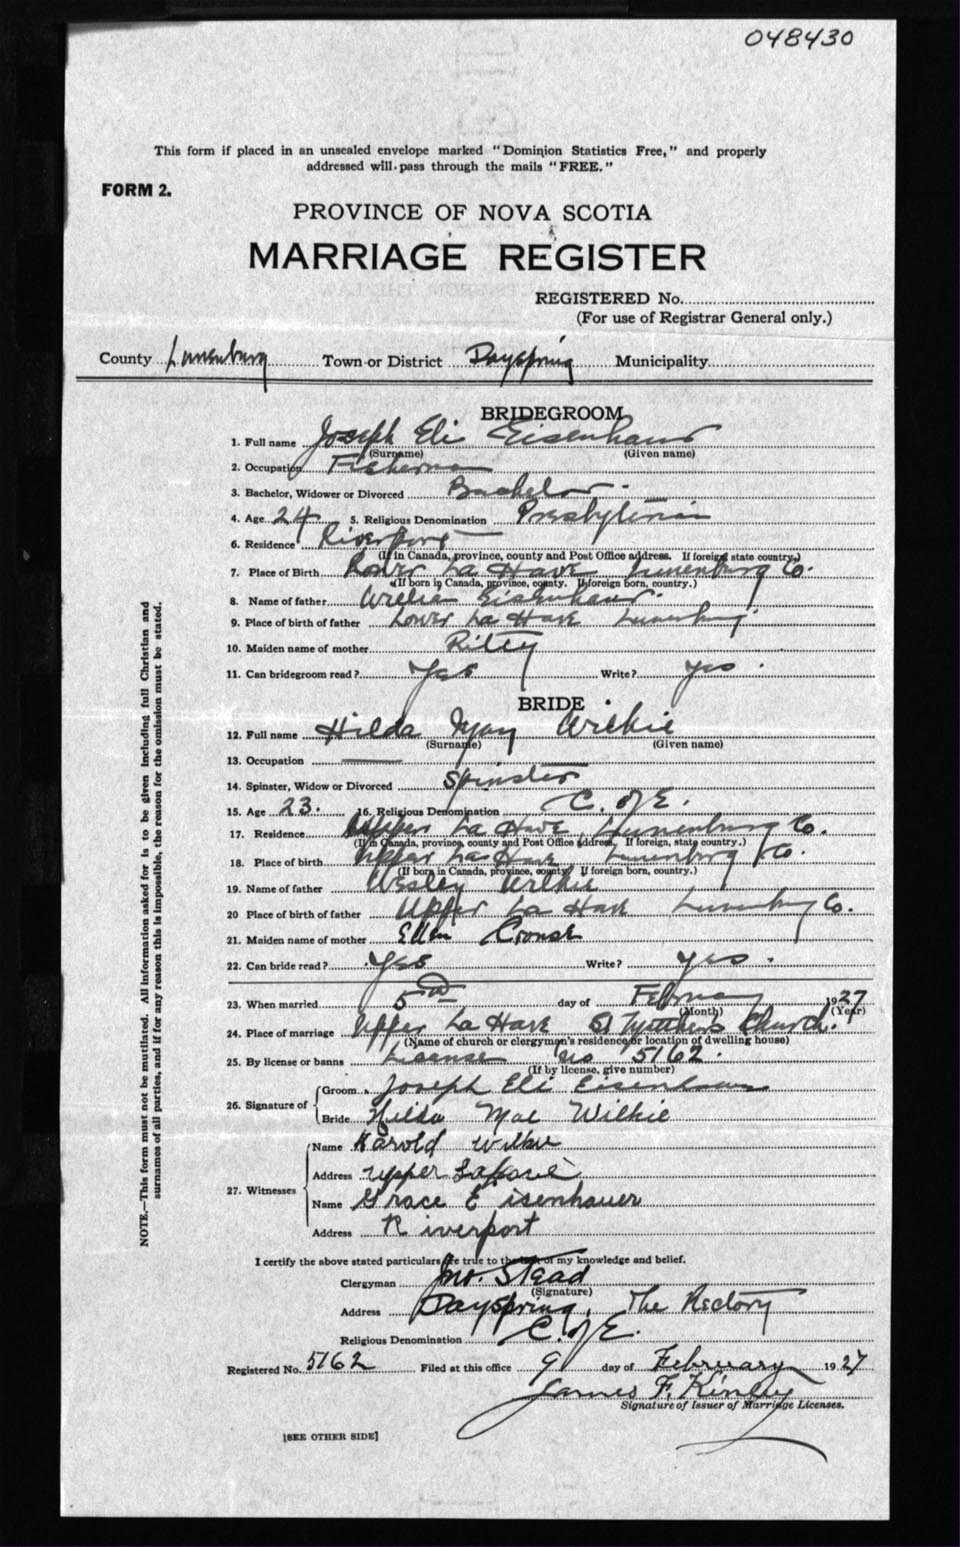 048430
This form if placed in an unsealed envelope marked "Dominion Statistics Free," and properly
addressed will pass through the mails "FREE."
FORM 2.
PROVINCE OF NOVA SCOTIA
MARRIAGE REGISTER
REGISTERED No.
(For use of Registrar General only.)
County Lunenburg Town or District Dayspring Municipality
BRIDEGROOM
1. Full name Joseph Eli Eisenhaur
(Surname) (Given name)
2. Occupation Fisherman
3. Bachelor, Widower or Divorced Bachelor
4. Age 24 5. Religious Denomination Presbyterian
6. Residence Riverport
(If in Canada, province, county and Post Office address. If foreign state country.)
7. Place of Birth Lower La Have Lunenburg Co.
(If born in Canada, province, county. If foreign born, country.)
8. Name of father Eisenhaur.
9. Place of birth of father Lower La Have Lunenburg
10. Maiden name of mother Ritcy
11. Can bridegroom read? Yes Write? yes
BRIDE
12. Full name Hilda May Wilkie
(Surname) (Given name)
13. Occupation
14. Spinster, Widow or Divorced Spinster
15. Age 23. 16. Religious Denomination C. of E.
17. Residence Upper La Have, Lunenburg Co.
(If in Canada, province, county and Post Office address. If foreign, state country.)
18. Place of birth Upper La Have Lunenburg Co.
(If born in Canada, province, county. If foreign born, country.)
19. Name of father Wesley Wilkie
20 Place of birth of father Upper La Have Lunenburg Co.
21. Maiden name of mother Ellen Crouse
22. Can bride read? Yes Write? yes
23. When married 5th day of February 1927
(Month) (Year)
24. Place of marriage Upper La Have St Church.
(Name of church or clergymen's residence or location of dwelling house)
25. By license or banns License No 5162.
(If by license, give number)
26. Signature of Groom Joseph Eli Eisenhaur
Bride Hilda Mae Wilkie
27. Witnesses Name Harold Wilkie
Address Upper LaHave
Name Grace Eisenhauer
Address Riverport
I certify the above stated particulars are true to the best of my knowledge and belief.
Clergyman Jno. Stead
(Signature)
Address Dayspring, The Rectory
Religious Denomination C. of E.
Registered No. 5162 Filed at this office 9 day of February 1927
James F. Kinley
Signature of Issuer of Marriage Licenses.
[SEE OTHER SIDE]
NOTE.—This form must not be mutilated. All information asked for is to be given including full Christian and
surnames of all parties, and if for any reason this is impossible, the reason for the omission must be stated.